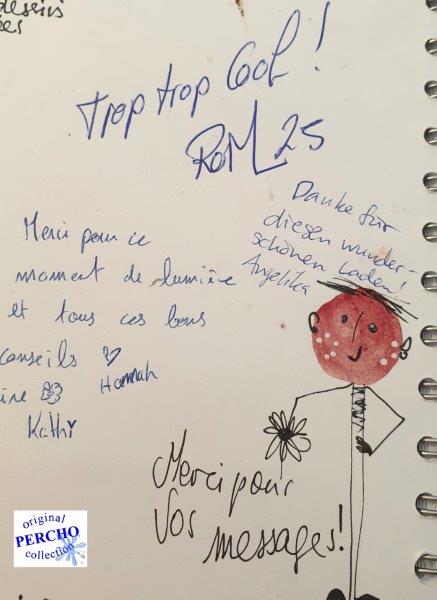 dessins
Trop trop Cool !
RoM 25
Danke für
diesen wunder-
schönen Laden!
Angelika
Merci pour ce
moment de lumière
et tous ces bons
conseils
Hannah
Kathi
Merci pour
Vos
messages!
original
PERCHO
collection